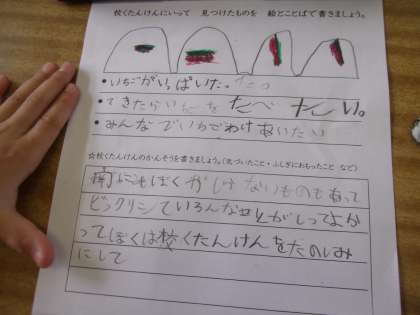 校くたんけんにいって 見つけたものを 絵とことばで書きましょう。
・いちごがいっぱいだ。
・できたらいちごを たべ たい。
・みんなでいちごわけあいたい
☆校くたんけんのかんそうを書きましょう。(気づいたこと・ふしぎにおもったこと など)
にもぼく がしけないものもあって
ビックリシているんな せとがしってよか
ってぼくは校くたんけんをたのしみ
にして